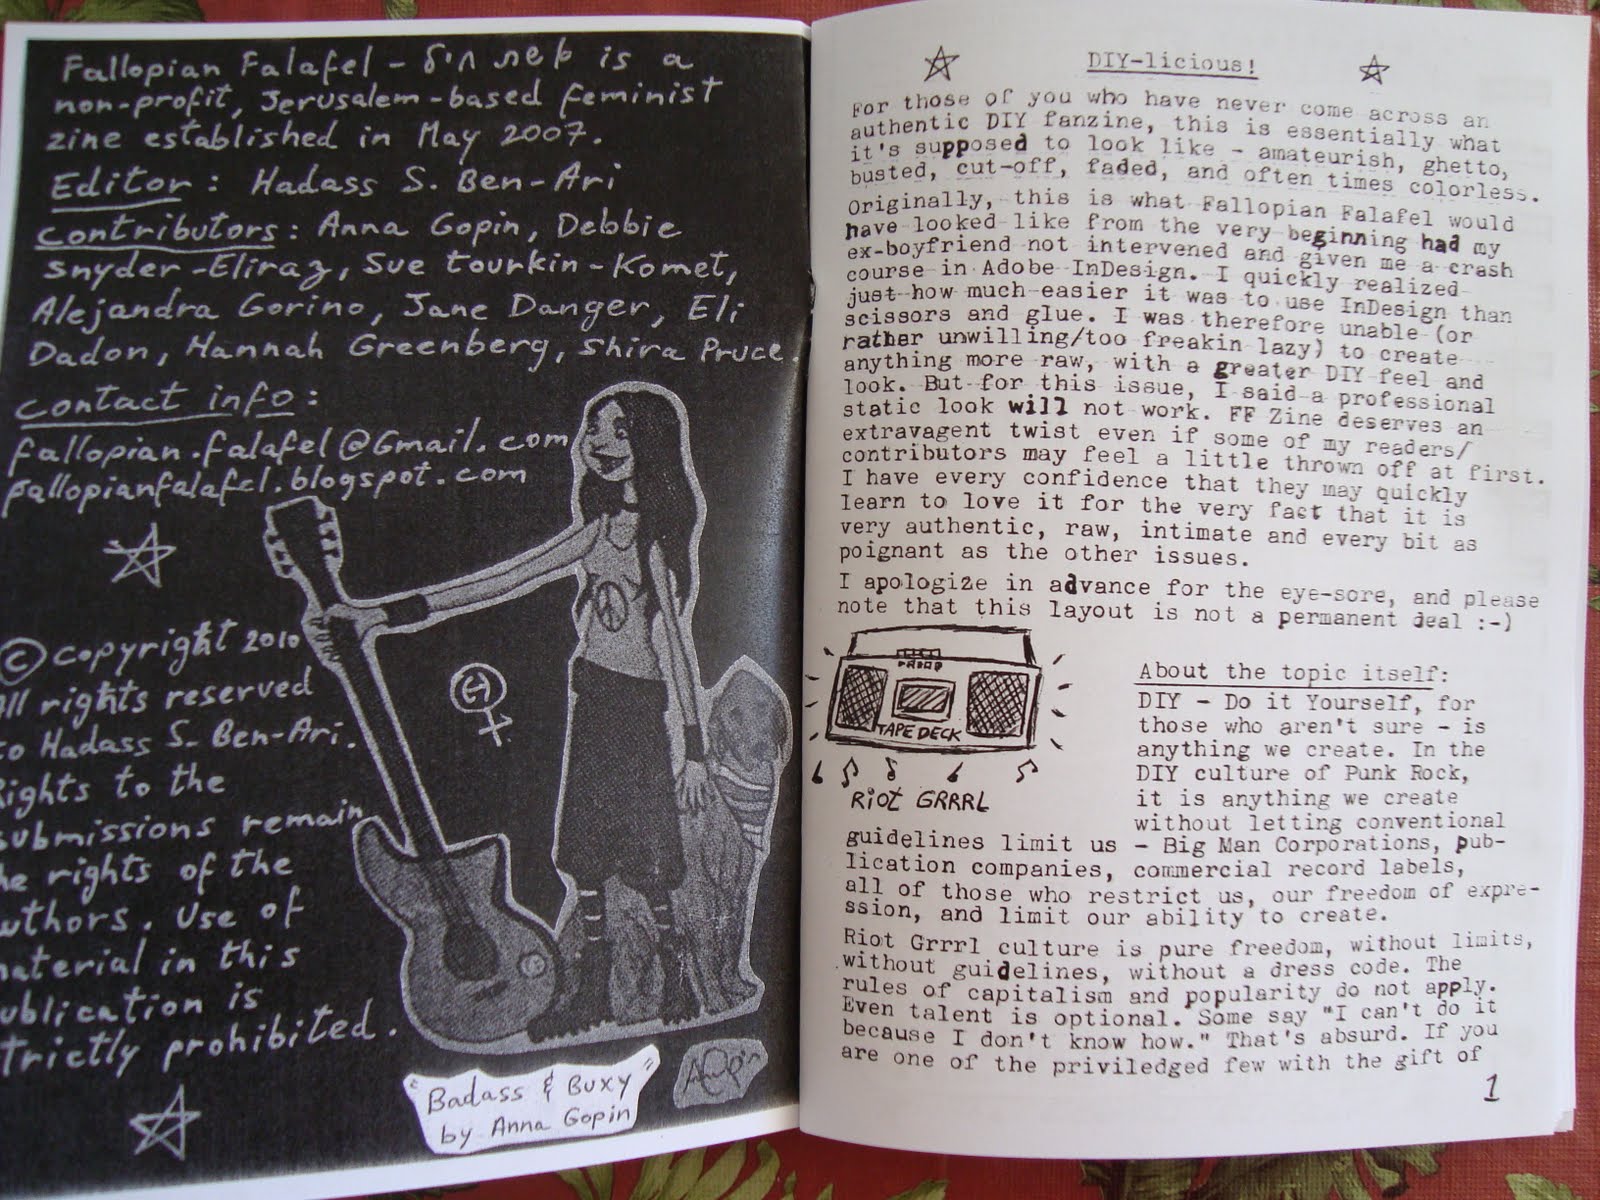 Fallopian Falafel – is a
non-profit, Jerusalem-based feminist
zine established in May 2007.
Editor: Hadass S. Ben-Ari
Contributors: Anna Gopin, Debbie
Snyder-Eliraz, Sue Tourkin-Komet,
Alejandra Gorino, Jane Danger, Eli
Dadon, Hannah Greenberg, Shira Pruce.
Contact info:
fallopian.falafel@Gmail.com
fallopianfalafel.blogspot.com
© Copyright 2010
All rights reserved
to Hadass S. Ben-Ari.
Rights to the
submissions remain
he rights of the
uthors. Use of
material in this
ublication is
trictly prohibited.
"Badass & Buxy"
by Anna Gopin
AGopin
DIY-licious!
For those of you who have never come across an
authentic DIY fanzine, this is essentially what
it's supposed to look like - amateurish, ghetto,
busted, cut-off, faded, and often times colorless.
Originally, this is what Fallopian Falafel would
have looked like from the very beginning had my
ex-boyfriend not intervened and given me a crash
course in Adobe InDesign. I quickly realized
just how much easier it was to use InDesign than
scissors and glue. I was therefore unable (or
rather unwilling/too freakin lazy) to create
anything more raw, with a greater DIY feel and
look. But for this issue, I said a professional
static look will not work. FF Zine deserves an
extravagent twist even if some of my readers/
contributors may feel a little thrown off at first.
I have every confidence that they may quickly
learn to love it for the very fact that it is
very authentic, raw, intimate and every bit as
poignant as the other issues.
I apologize in advance for the eye-sore, and please
note that this layout is not a permanent deal :-)
TAPE DECK
RIOT GRRRL
About the topic itself:
DIY - Do it Yourself, for
those who aren't sure - is
anything we create. In the
DIY culture of Punk Rock,
it is anything we create
without letting conventional
guidelines limit us - Big Man Corporations, pub-
lication companies, commercial record labels,
all of those who restrict us, our freedom of expre-
ssion, and limit our ability to create.
Riot Grrrl culture is pure freedom, without limits,
without guidelines, without a dress code. The
rules of capitalism and popularity do not apply.
Even talent is optional. Some say "I can't do it
because I don't know how." That's absurd. If you
are one of the priviledged few with the gift of
1